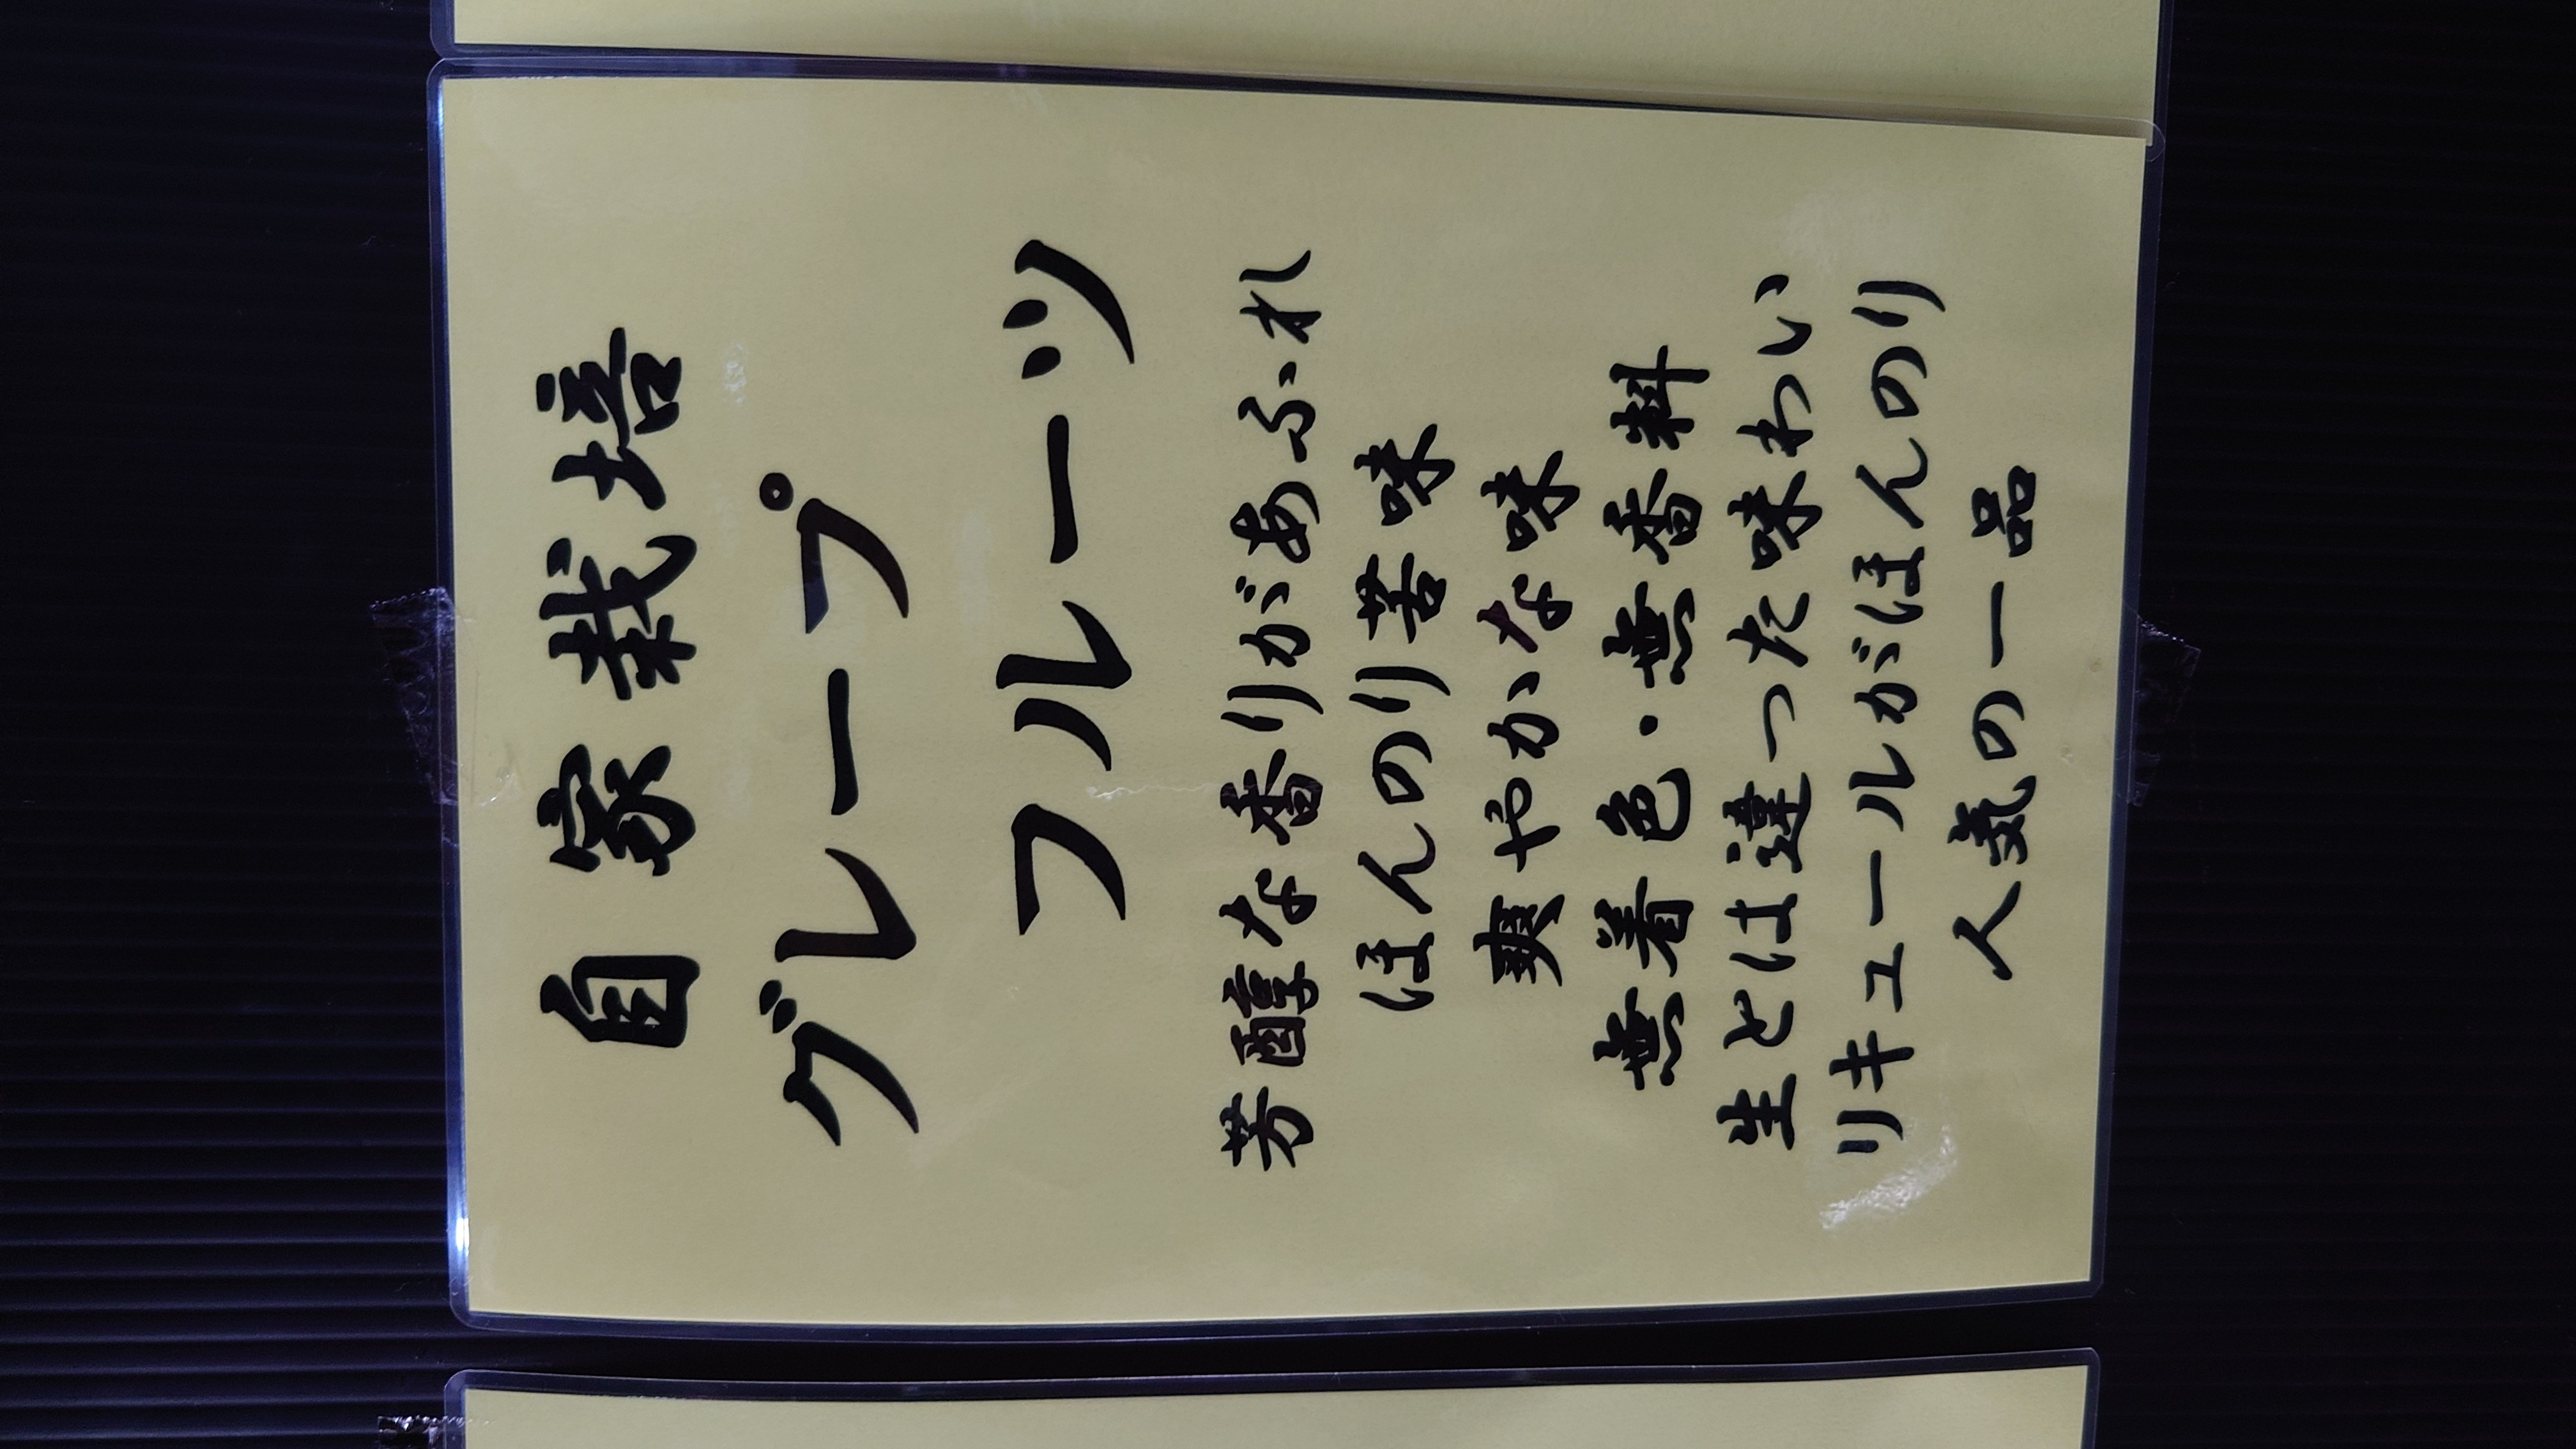 自家栽培
グレープ
フルーツ
芳醇な香りがあふれ
ほんのり苦味
爽やかな味
無着色・無香料
生とは違った味わい
リキュールがほんのり
人気の一品